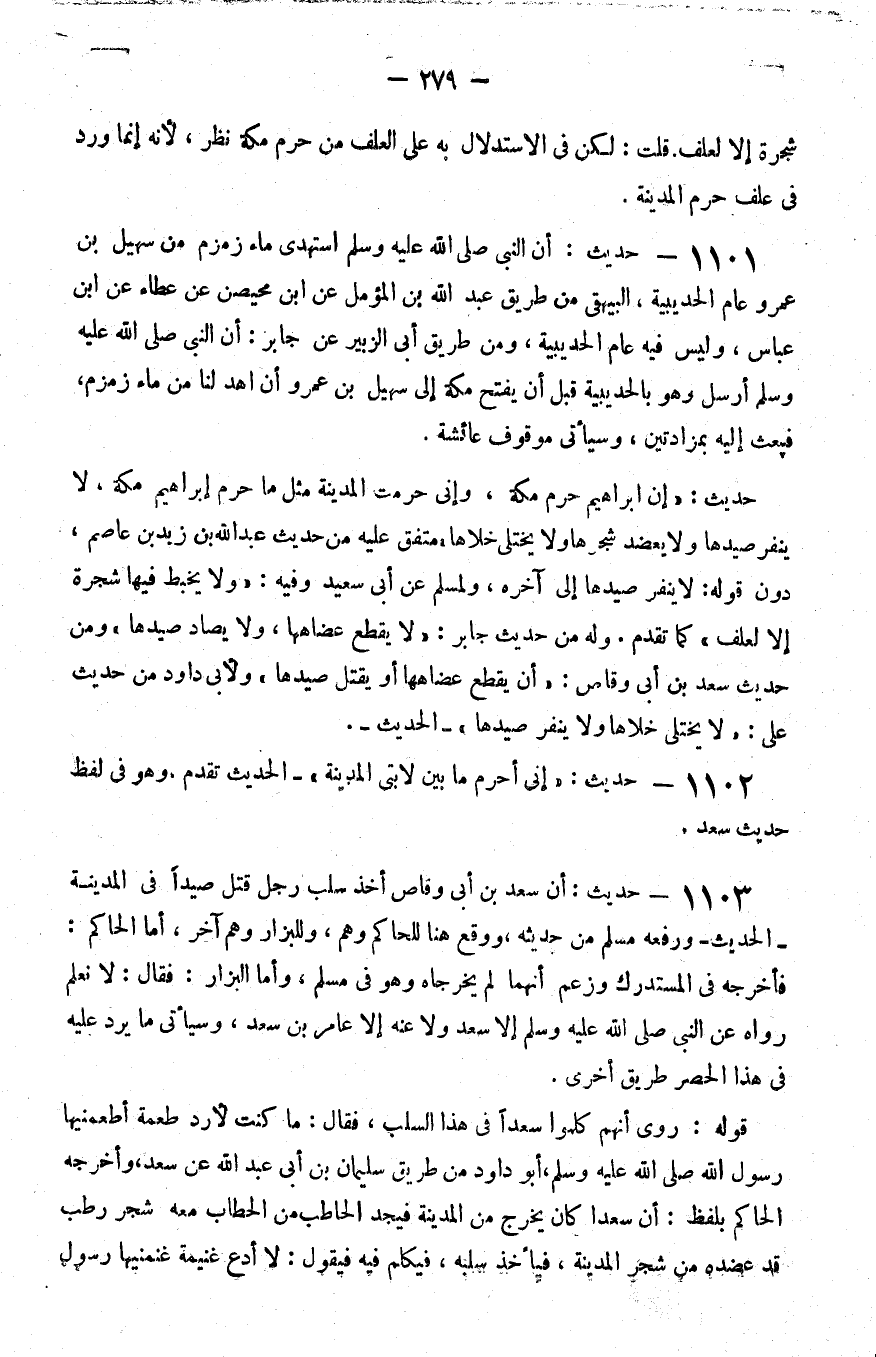 — ٢٧٩ —
شجرة إلا لعلف. قلت : لكن فى الاستدلال به على العلف من حرم مكة نظر ، لأنه إنما ورد
فى علف حرم المدينة .
١١٠١ — حديث : أن النبي صلى الله عليه وسلم استهدى ماء زمزم من سهيل بن
عمرو عام الحديبية ، البيهقى من طريق عبد الله بن المؤمل عن ابن محيصن عن عطاء عن ابن
عباس ، وليس فيه عام الحديبية ، ومن طريق أبى الزبير عن جابر : أن النبي صلى الله عليه
وسلم أرسل وهو بالحديبية قبل أن يفتح مكة إلى سهيل بن عمرو أن اهد لنا من ماء زمزم،
فيبعث إليه بمزادتين ، وسيأتى موقوف عائشة .
حديث : « إن ابراهيم حرم مكة ، وإنى حرمت المدينة مثل ما حرم إبراهيم مكة ، لا
ينفر صيدها ولا يعضد شجرها ولا يختلى خلاها» متفق عليه من حديث عبدالله بن زيد بن عاصم ،
دون قوله: لا ينفر صيدها إلى آخره ، ولمسلم عن أبى سعيد وفيه : « ولا يخبط فيها شجرة
إلا لعلف » كما تقدم . وله من حديث جابر : « لا يقطع عضاهها ، ولا يصاد صيدها » ومن
حديث سعد بن أبى وقاص : « أن يقطع عضاهها أو يقتل صيدها » ولأبى داود من حديث
على : « لا يختلى خلاها ولا ينفر صيدها » ـ الحديث ـ .
١١٠٢ — حديث : « إنى أحرم ما بين لابتى المدينة » ـ الحديث تقدم . وهو فى لفظ
حديث سعد .
١١٠٣ — حديث : أن سعد بن أبى وقاص أخذ سلب رجل قتل صيداً فى المدينة
ـ الحديث ـ ورفعه مسلم من حديثه ، ووقع هنا للحاكم وهم ، وللبزار وهم آخر ، أما الحاكم :
فأخرجه فى المستدرك وزعم أنهما لم يخرجاه وهو فى مسلم ، وأما البزار : فقال : لا نعلم
رواه عن النبي صلى الله عليه وسلم إلا سعد ولا عنه إلا عامر بن سعد ، وسيأتى ما يرد عليه
فى هذا الحصر طريق أخرى .
قوله : روى أنهم كلموا سعداً فى هذا السلب ، فقال : ما كنت لأرد طعمة أطعمنيها
رسول الله صلى الله عليه وسلم، أبو داود من طريق سليمان بن أبى عبد الله عن سعد، وأخرجه
الحاكم بلفظ : أن سعدا كان يخرج من المدينة فيجد الحاطب من الحطاب معه شجر رطب
قد عضده من شجر المدينة ، فيأخذ سلبه ، فيكلم فيه فيقول : لا أدع غنيمة غنمنيها رسول